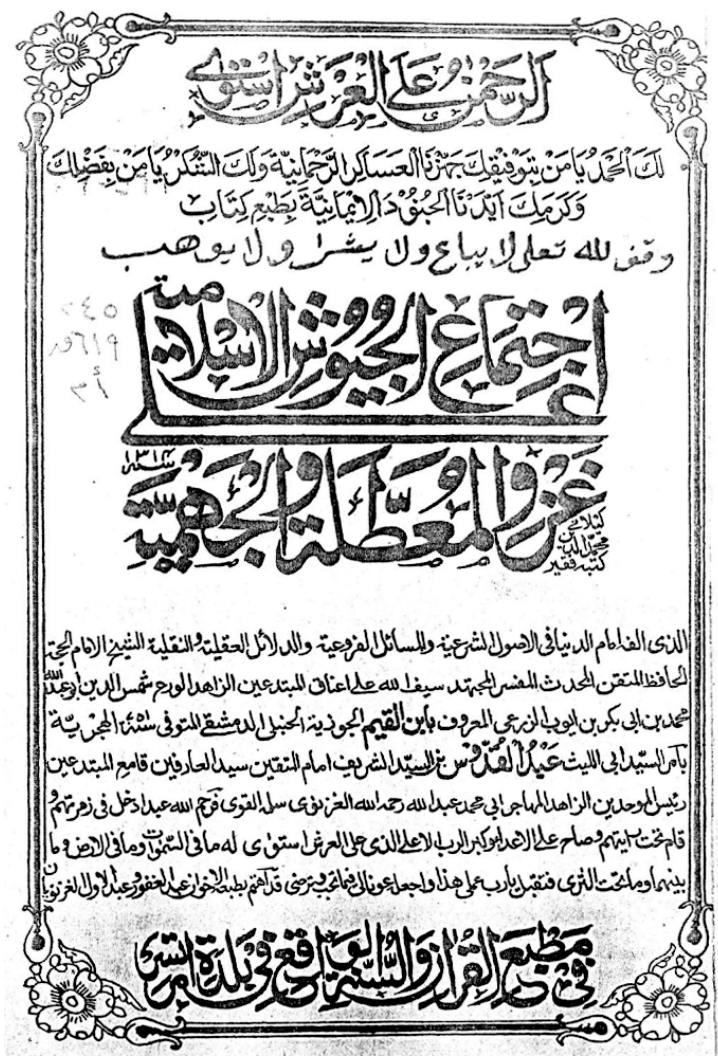 الرَّحْمٰنُ عَلَى الْعَرْشِ اسْتَوٰى
لَكَ الْحَمْدُ يَا مَنْ بِتَوْفِيْقِكَ جَهَّزْنَا الْعَسَاكِرَ الرَّحْمَانِيَّةَ وَلَكَ الشُّكْرُ يَا مَنْ بِفَضْلِكَ
وَكَرَمِكَ اَيَّدْنَا الْجُنُوْدَ الْاِيْمَانِيَّةَ بِطَبْعِ كِتَابِ
وقف لله تعلى لا يباع ولا يشرا ولا يوهب
٢٤٥
اِجْتِمَاعِ الْجُيُوْشِ الْاِسْلَامِيَّة
عَلٰى
غَزْوِ الْمُعَطِّلَةِ وَالْجَهْمِيَّةِ
كتبه فقير
الذى الفه امام الدنيا فى الاصول الشرعية والمسائل الفروعية والدلائل العقلية والنقلية الشيخ الامام الحجة
الحافظ المتقن المحدث المفسر المجتهد سيف الله على اعناق المبتدعين الزاهد الورع شمس الدين ابو عبد الله
محمد بن ابى بكر بن ايوب الزرعى المعروف بابن القيم الجوزية الحنبلى الدمشقى المتوفى سنة الهجرية
بامر السيد ابى الليث عَبْدُ الْقُدُّوْس بن السيد الشريف امام المتقين سيد العارفين قامع المبتدعين
رئيس الموحدين الزاهد المهاجر ابى محمد عبد الله رحمه الله الغزنوى سلمه القوى فرحم الله عبدا دخل فى زمرتهم و
قام تحت رايتهم وصاح على الاعداء بوكبر الرب الاعلى الذى على العرش استوى له ما فى السموات وما فى الارض وما
بينهما وما تحت الثرى فتقبل يا رب عملى هذا واجعله عونا لى فيما تحب وترضى قد اهتم بطبعه الاخوان عبد الغفور وعبد الاول الغزنويان
فِىْ مَطْبَعِ الْقُرْاٰنِ وَالسُّنَّةِ الْوَاقِعِ فِىْ بَلْدَةِ امْرتسر